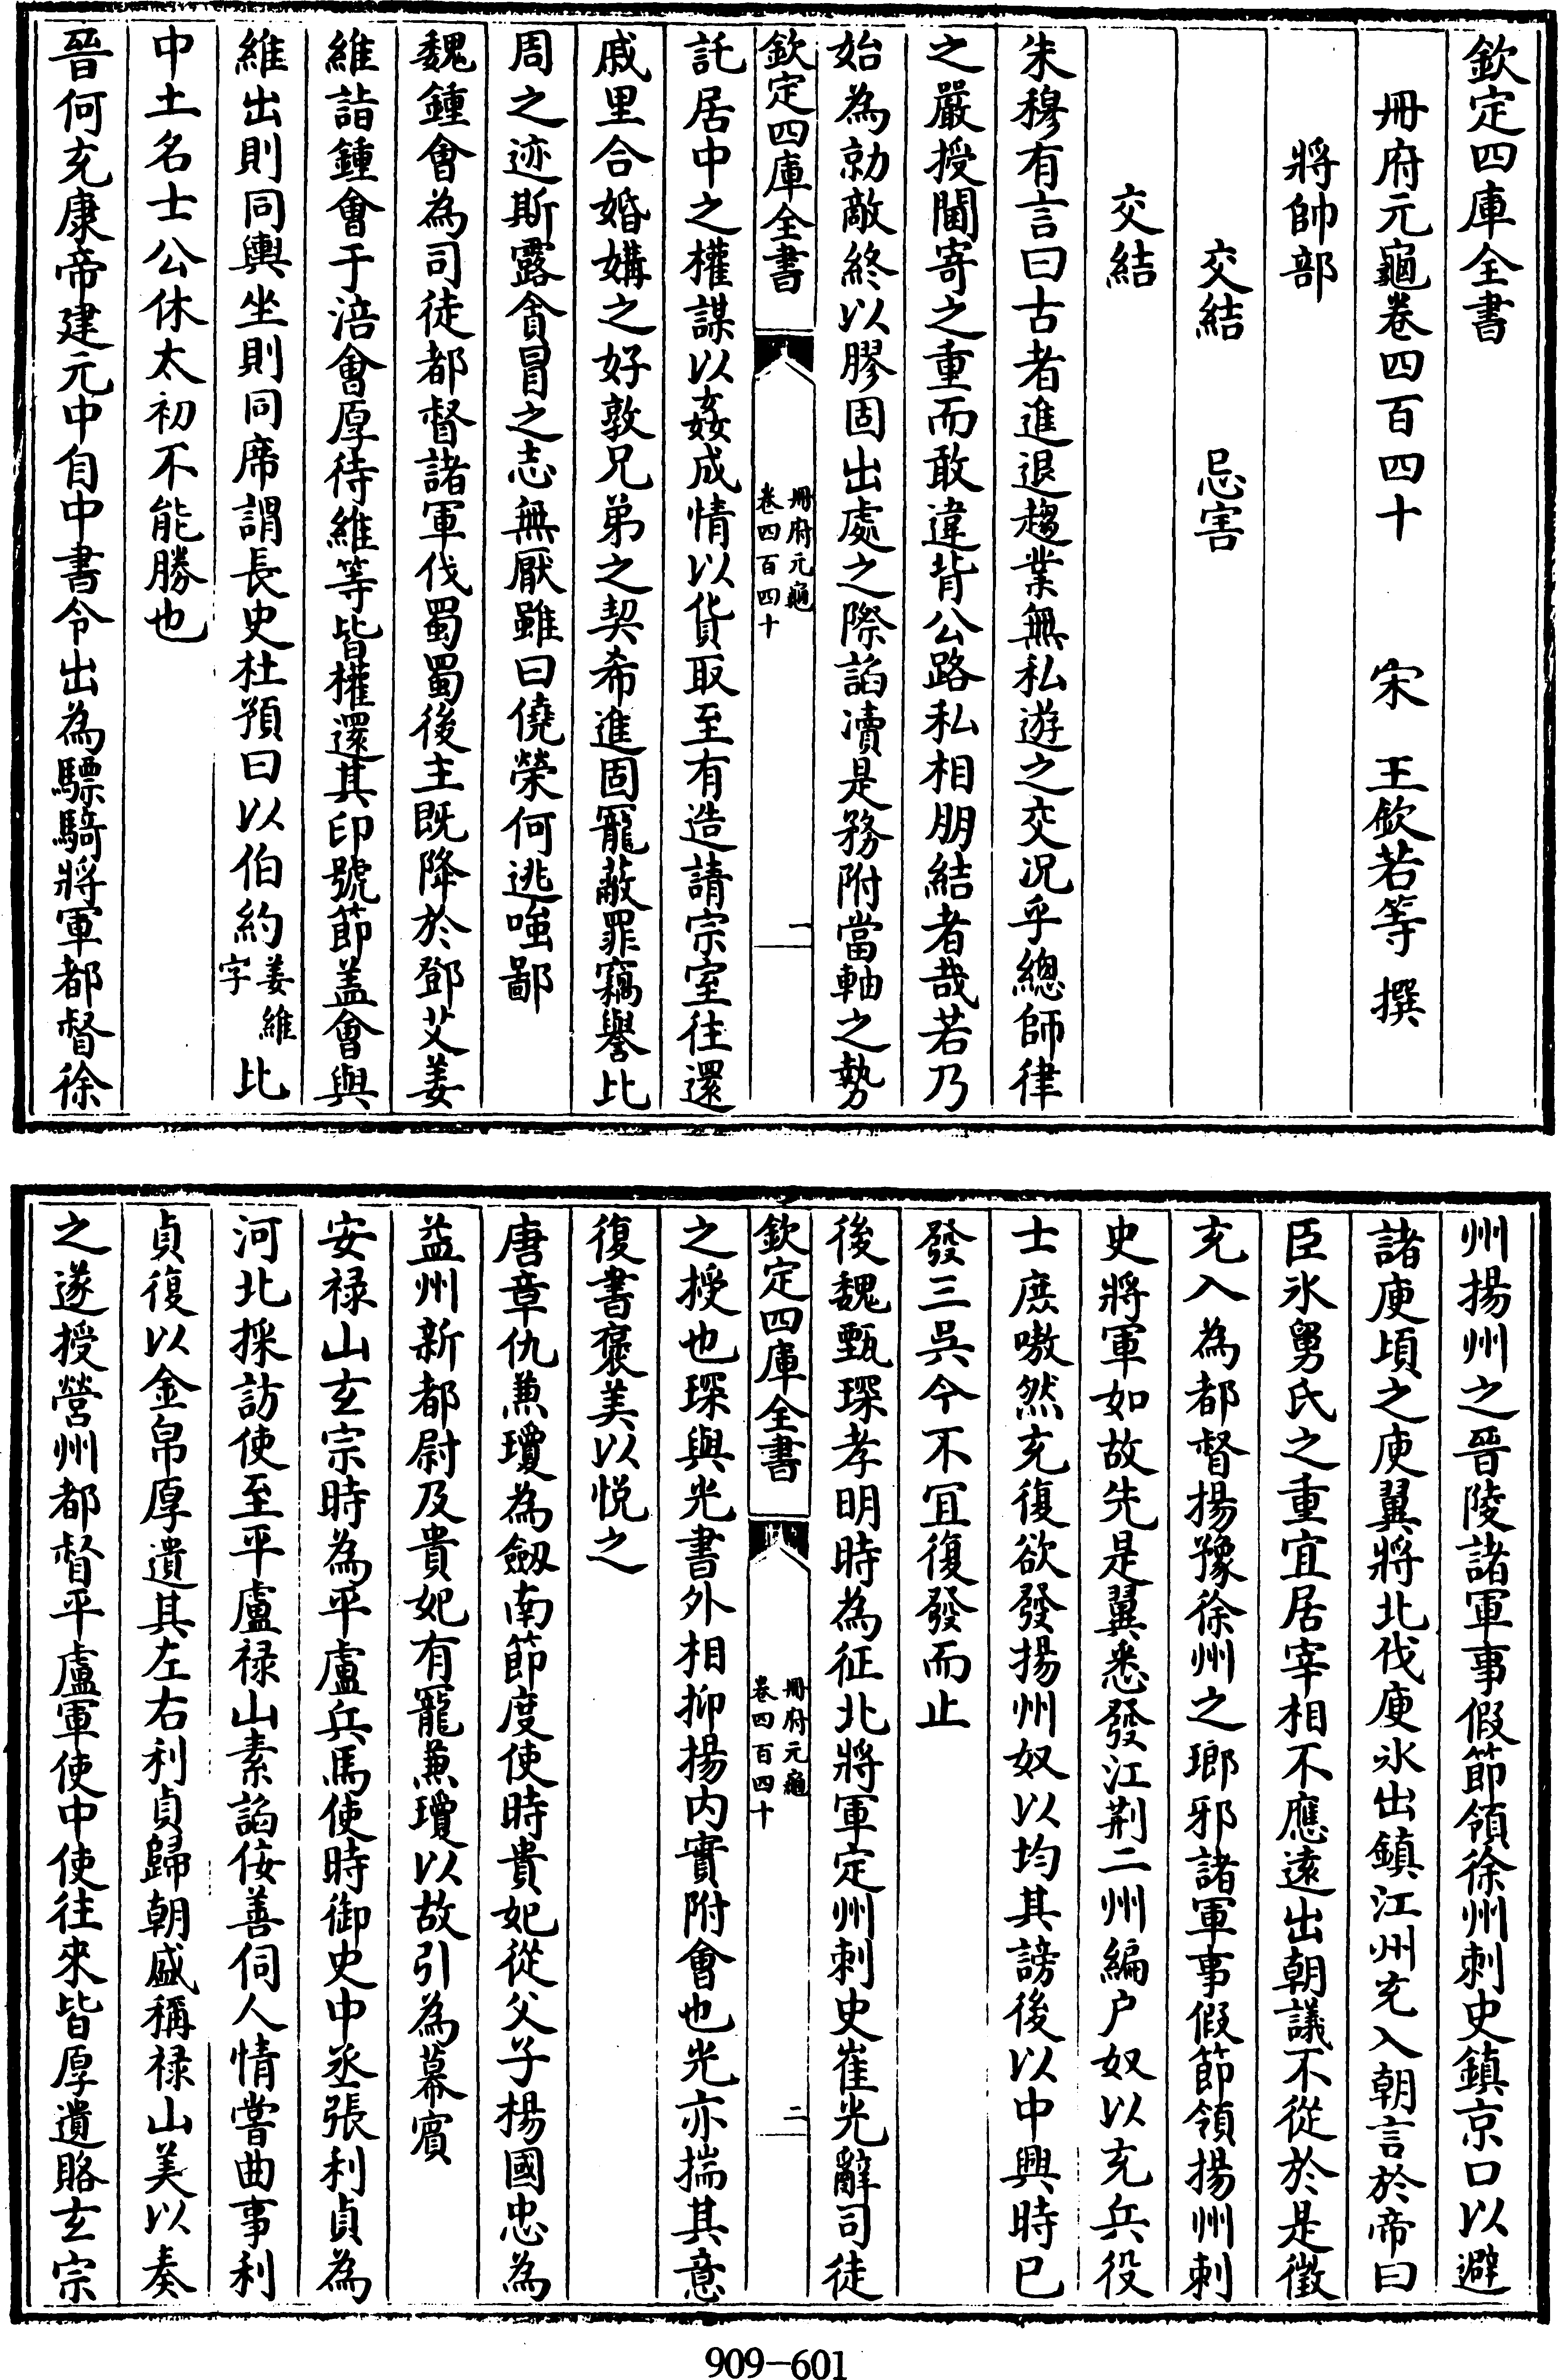 欽定四庫全書
冊府元龜卷四百四十　宋　王欽若等　撰
將帥部
交結　忌害
交結
朱穆有言曰古者進退趨業無私遊之交况乎總師律
之嚴授閫寄之重而敢違背公路私相朋結者哉若乃
始為勍敵終以膠固出處之際諂凟是務附當軸之勢
欽定四庫全書
冊府元龜
卷四百四十
一
託居中之權謀以姦成情以貨取至有造請宗室往還
戚里合婚媾之好敦兄弟之契希進固寵蔽罪竊譽比
周之迹斯露貪冒之志無厭雖曰僥榮何逃嗤鄙
魏鍾會為司徒都督諸軍伐蜀蜀後主既降於鄧艾姜
維詣鍾會于涪會厚待維等皆權還其印號節盖會與
維出則同輿坐則同席謂長史杜預曰以伯約姜維字比
中土名士公休太初不能勝也
晉何充康帝建元中自中書令出為驃騎將軍都督徐
州揚州之晉陵諸軍事假節領徐州刺史鎮京口以避
諸庾頃之庾翼將北伐庾氷出鎮江州充入朝言於帝曰
臣氷舅氏之重宜居宰相不應遠出朝議不從於是徵
充入為都督揚豫徐州之瑯邪諸軍事假節領揚州刺
史將軍如故先是翼悉發江荆二州編户奴以充兵役
士庶嗷然充復欲發揚州奴以均其謗後以中興時已
發三吳今不宜復發而止
後魏甄琛孝明時為征北將軍定州刺史崔光辭司徒
欽定四庫全書
冊府元龜
卷四百四十
二
之授也琛與光書外相抑揚内實附會也光亦揣其意
復書襃美以悦之
唐章仇兼瓊為劔南節度使時貴妃從父子楊國忠為
益州新都尉及貴妃有寵兼瓊以故引為幕賔
安禄山玄宗時為平盧兵馬使時御史中丞張利貞為
河北採訪使至平盧禄山素諂佞善伺人情嘗曲事利
貞復以金帛厚遺其左右利貞歸朝盛稱禄山美以奏
之遂授營州都督平盧軍使中使往來皆厚遺賂玄宗
909-601